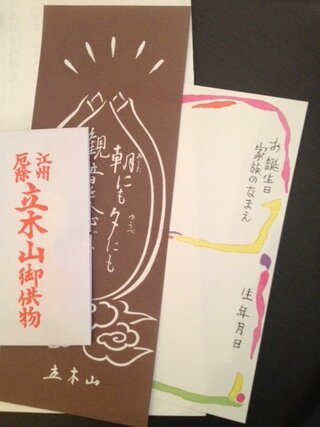 江州
厄除
立木山御供物
朝にも夕にも
あした
ゆうべ
観音
立木山
お誕生日
家族のなまえ
生年月日